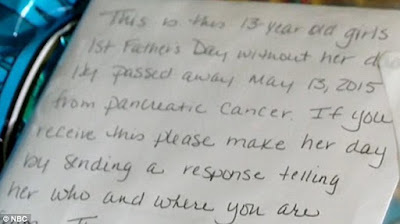 This is this 13 year old girls
1st Father's Day without her d
passed away May 13, 2015
from pancreatic cancer. If you
receive this please make her day
by sending a response telling
her who and where you are
© NBC